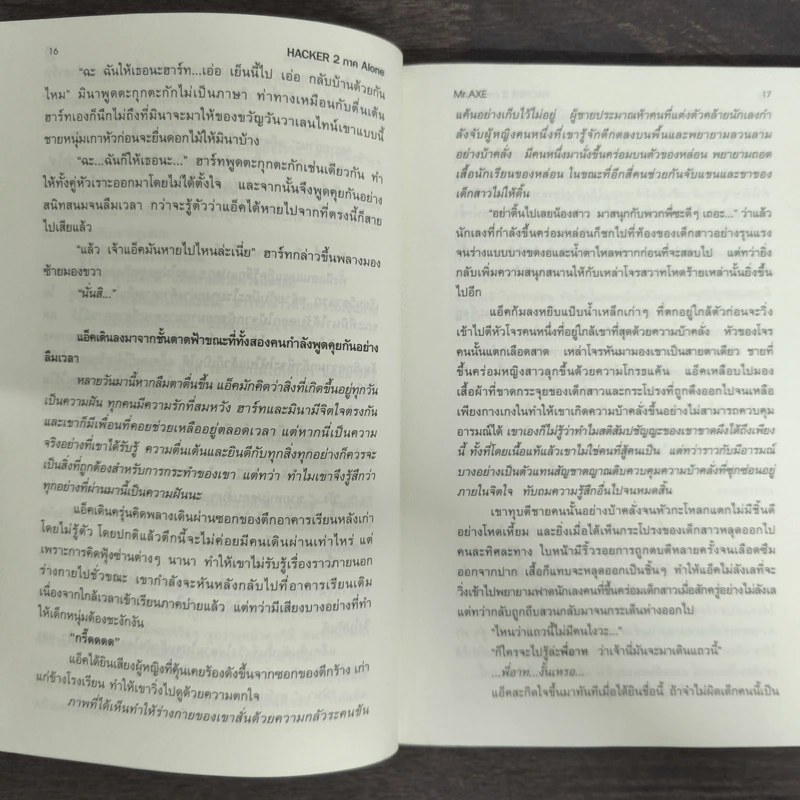 16
HACKER 2 ภาค Alone
"ฉะ ฉันให้เธอนะฮาร์ท...เอ่อ เย็นนี้ไป เอ่อ กลับบ้านด้วยกัน
ไหม" มินาพูดตะกุกตะกักไม่เป็นภาษา ท่าทางเหมือนกับตื่นเต้น
ฮาร์ทเองก็นึกไม่ถึงที่มินาจะมาให้ของขวัญวันวาเลนไทน์เขาแบบนี้
ชายหนุ่มเกาหัวก่อนจะยื่นดอกไม้ให้มินาบ้าง
"ฉะ...ฉันก็ให้เธอนะ..." ฮาร์ทพูดตะกุกตะกักเช่นเดียวกัน ทำ
ให้ทั้งคู่หัวเราะออกมาโดยไม่ได้ตั้งใจ และจากนั้นจึงพูดคุยกันอย่าง
สนิทสนมจนลืมเวลา กว่าจะรู้ตัวว่าแอ็คได้หายไปจากที่ตรงนี้ก็สาย
ไปเสียแล้ว
"แล้ว เจ้าแอ็คมันหายไปไหนล่ะเนี่ย" ฮาร์ทกล่าวขึ้นพลางมอง
ซ้ายมองขวา
"นั่นสิ..."
แอ็คเดินลงมาจากชั้นดาดฟ้าขณะที่ทั้งสองคนกำลังพูดคุยกันอย่าง
ลืมเวลา
หลายวันมานี้หากลืมตาตื่นขึ้น แอ็คมักคิดว่าสิ่งที่เกิดขึ้นอยู่ทุกวัน
เป็นความฝัน ทุกคนมีความรักที่สมหวัง ฮาร์ทและมินามีจิตใจตรงกัน
และเขาก็มีเพื่อนที่คอยช่วยเหลืออยู่ตลอดเวลา แต่หากนี่เป็นความ
จริงอย่างที่เขาได้รับรู้ ความตื่นเต้นและยินดีกับทุกสิ่งทุกอย่างก็ควรจะ
เป็นสิ่งที่ถูกต้องสำหรับการกระทำของเขา แต่ทว่า ทำไมเขาจึงรู้สึกว่า
ทุกอย่างที่ผ่านมานี้เป็นความฝันนะ
แอ็คเดินครุ่นคิดพลางเดินผ่านซอกของตึกอาคารเรียนหลังเก่า
โดยไม่รู้ตัว โดยปกติแล้วตึกนี้จะไม่ค่อยมีคนเดินผ่านเท่าไหร่ แต่
เพราะการคิดฟุ้งซ่านต่างๆ นานา ทำให้เขาไม่รับรู้เรื่องราวภายนอก
ร่างกายไปชั่วขณะ เขากำลังจะหันหลังกลับไปที่อาคารเรียนเดิม
เนื่องจากใกล้เวลาเข้าเรียนภาคบ่ายแล้ว แต่ทว่ามีเสียงบางอย่างที่ทำ
ให้เด็กหนุ่มต้องชะงักงัน
"กรี๊ดดดด"
แอ็คได้ยินเสียงผู้หญิงที่คุ้นเคยร้องดังขึ้นจากซอกของตึกร้าง เก่า
แก่ข้างโรงเรียน ทำให้เขาวิ่งไปดูด้วยความตกใจ
ภาพที่ได้เห็นทำให้ร่างกายของเขาสั่นด้วยความกลัวระคนขัน
Mr.AXE
17
แค้นอย่างเก็บไว้ไม่อยู่ ผู้ชายประมาณห้าคนที่แต่งตัวคล้ายนักเลงกำ
ลังจับผู้หญิงคนหนึ่งที่เขารู้จักดีกดลงบนพื้นและพยายามลวนลาม
อย่างบ้าคลั่ง มีคนหนึ่งมานั่งขึ้นคร่อมบนตัวของหล่อน พยายามถอด
เสื้อนักเรียนของหล่อน ในขณะที่อีกสี่คนช่วยกันจับแขนและขาของ
เด็กสาวไม่ให้ดิ้น
"อย่าดิ้นไปเลยน้องสาว มาสนุกกับพวกพี่ซะดีๆ เถอะ..." ว่าแล้ว
นักเลงที่กำลังขึ้นคร่อมหล่อนก็ชกไปที่ท้องของเด็กสาวอย่างรุนแรง
จนร่างแบบบางงอลงและน้ำตาไหลพรากก่อนที่จะสลบไป แต่ทว่ายิ่ง
กลับเพิ่มความสนุกสนานให้กับเหล่าโจรสวาทโหดร้ายเหล่านั้นยิ่งขึ้น
ไปอีก
แอ็คก้มลงหยิบแป๊บน้ำเหล็กเก่าๆ ที่ตกอยู่ใกล้ตัวก่อนจะวิ่ง
เข้าไปตีหัวโจรคนหนึ่งที่อยู่ใกล้เขาที่สุดด้วยความบ้าคลั่ง หัวของโจร
คนนั้นแตกเลือดสาด เหล่าโจรหันมามองเขาเป็นสายตาเดียว ชายที่
ขึ้นคร่อมหญิงสาวลุกขึ้นด้วยความโกรธแค้น แอ็คเหลือบไปมอง
เสื้อผ้าที่ขาดกระจุยของเด็กสาวและกระโปรงที่ถูกดึงออกไปจนเหลือ
เพียงกางเกงในทำให้เขาเกิดความบ้าคลั่งขึ้นอย่างไม่สามารถควบคุม
อารมณ์ได้ เขาเองก็ไม่รู้ว่าทำไมสติสัมปชัญญะของเขาขาดผึงได้ถึงเพียง
นี้ ทั้งที่โดยเนื้อแท้แล้วเขาไม่ใช่คนที่สู้คนเป็น แต่ทว่าราวกับมีอารมณ์
บางอย่างเป็นตัวแทนสัญชาตญาณดิบควบคุมความบ้าคลั่งที่ซุกซ่อนอยู่
ภายในจิตใจ ทับถมความรู้สึกอื่นไปจนหมดสิ้น
เขาทุบตีชายคนนั้นอย่างบ้าคลั่งจนหัวกะโหลกแตกไม่มีชิ้นดี
อย่างโหดเหี้ยม และยิ่งเมื่อได้เห็นกระโปรงของเด็กสาวหลุดออกไป
คนละทิศละทาง ใบหน้ามีริ้วรอยการถูกตบตีหลายครั้งจนเลือดซึม
ออกจากปาก เสื้อก็แทบจะหลุดออกเป็นชิ้นๆ ทำให้แอ็คไม่ลังเลที่จะ
วิ่งเข้าไปพยายามฟาดนักเลงคนที่ขึ้นคร่อมเด็กสาวเมื่อสักครู่อย่างไม่ลังเล
แต่ทว่ากลับถูกถีบสวนกลับมาจนกระเด็นห่างออกไป
"ไหนว่าแถวนี้ไม่มีคนไงวะ..."
"ก็ใครจะไปรู้ล่ะพี่อาท ว่าเจ้านี่มันจะมาเดินแถวนี้"
...พี่อาท...งั้นเหรอ...
แอ็คสะกิดใจขึ้นมาทันทีเมื่อได้ยินชื่อนี้ ถ้าจำไม่ผิดเด็กคนนี้เป็น